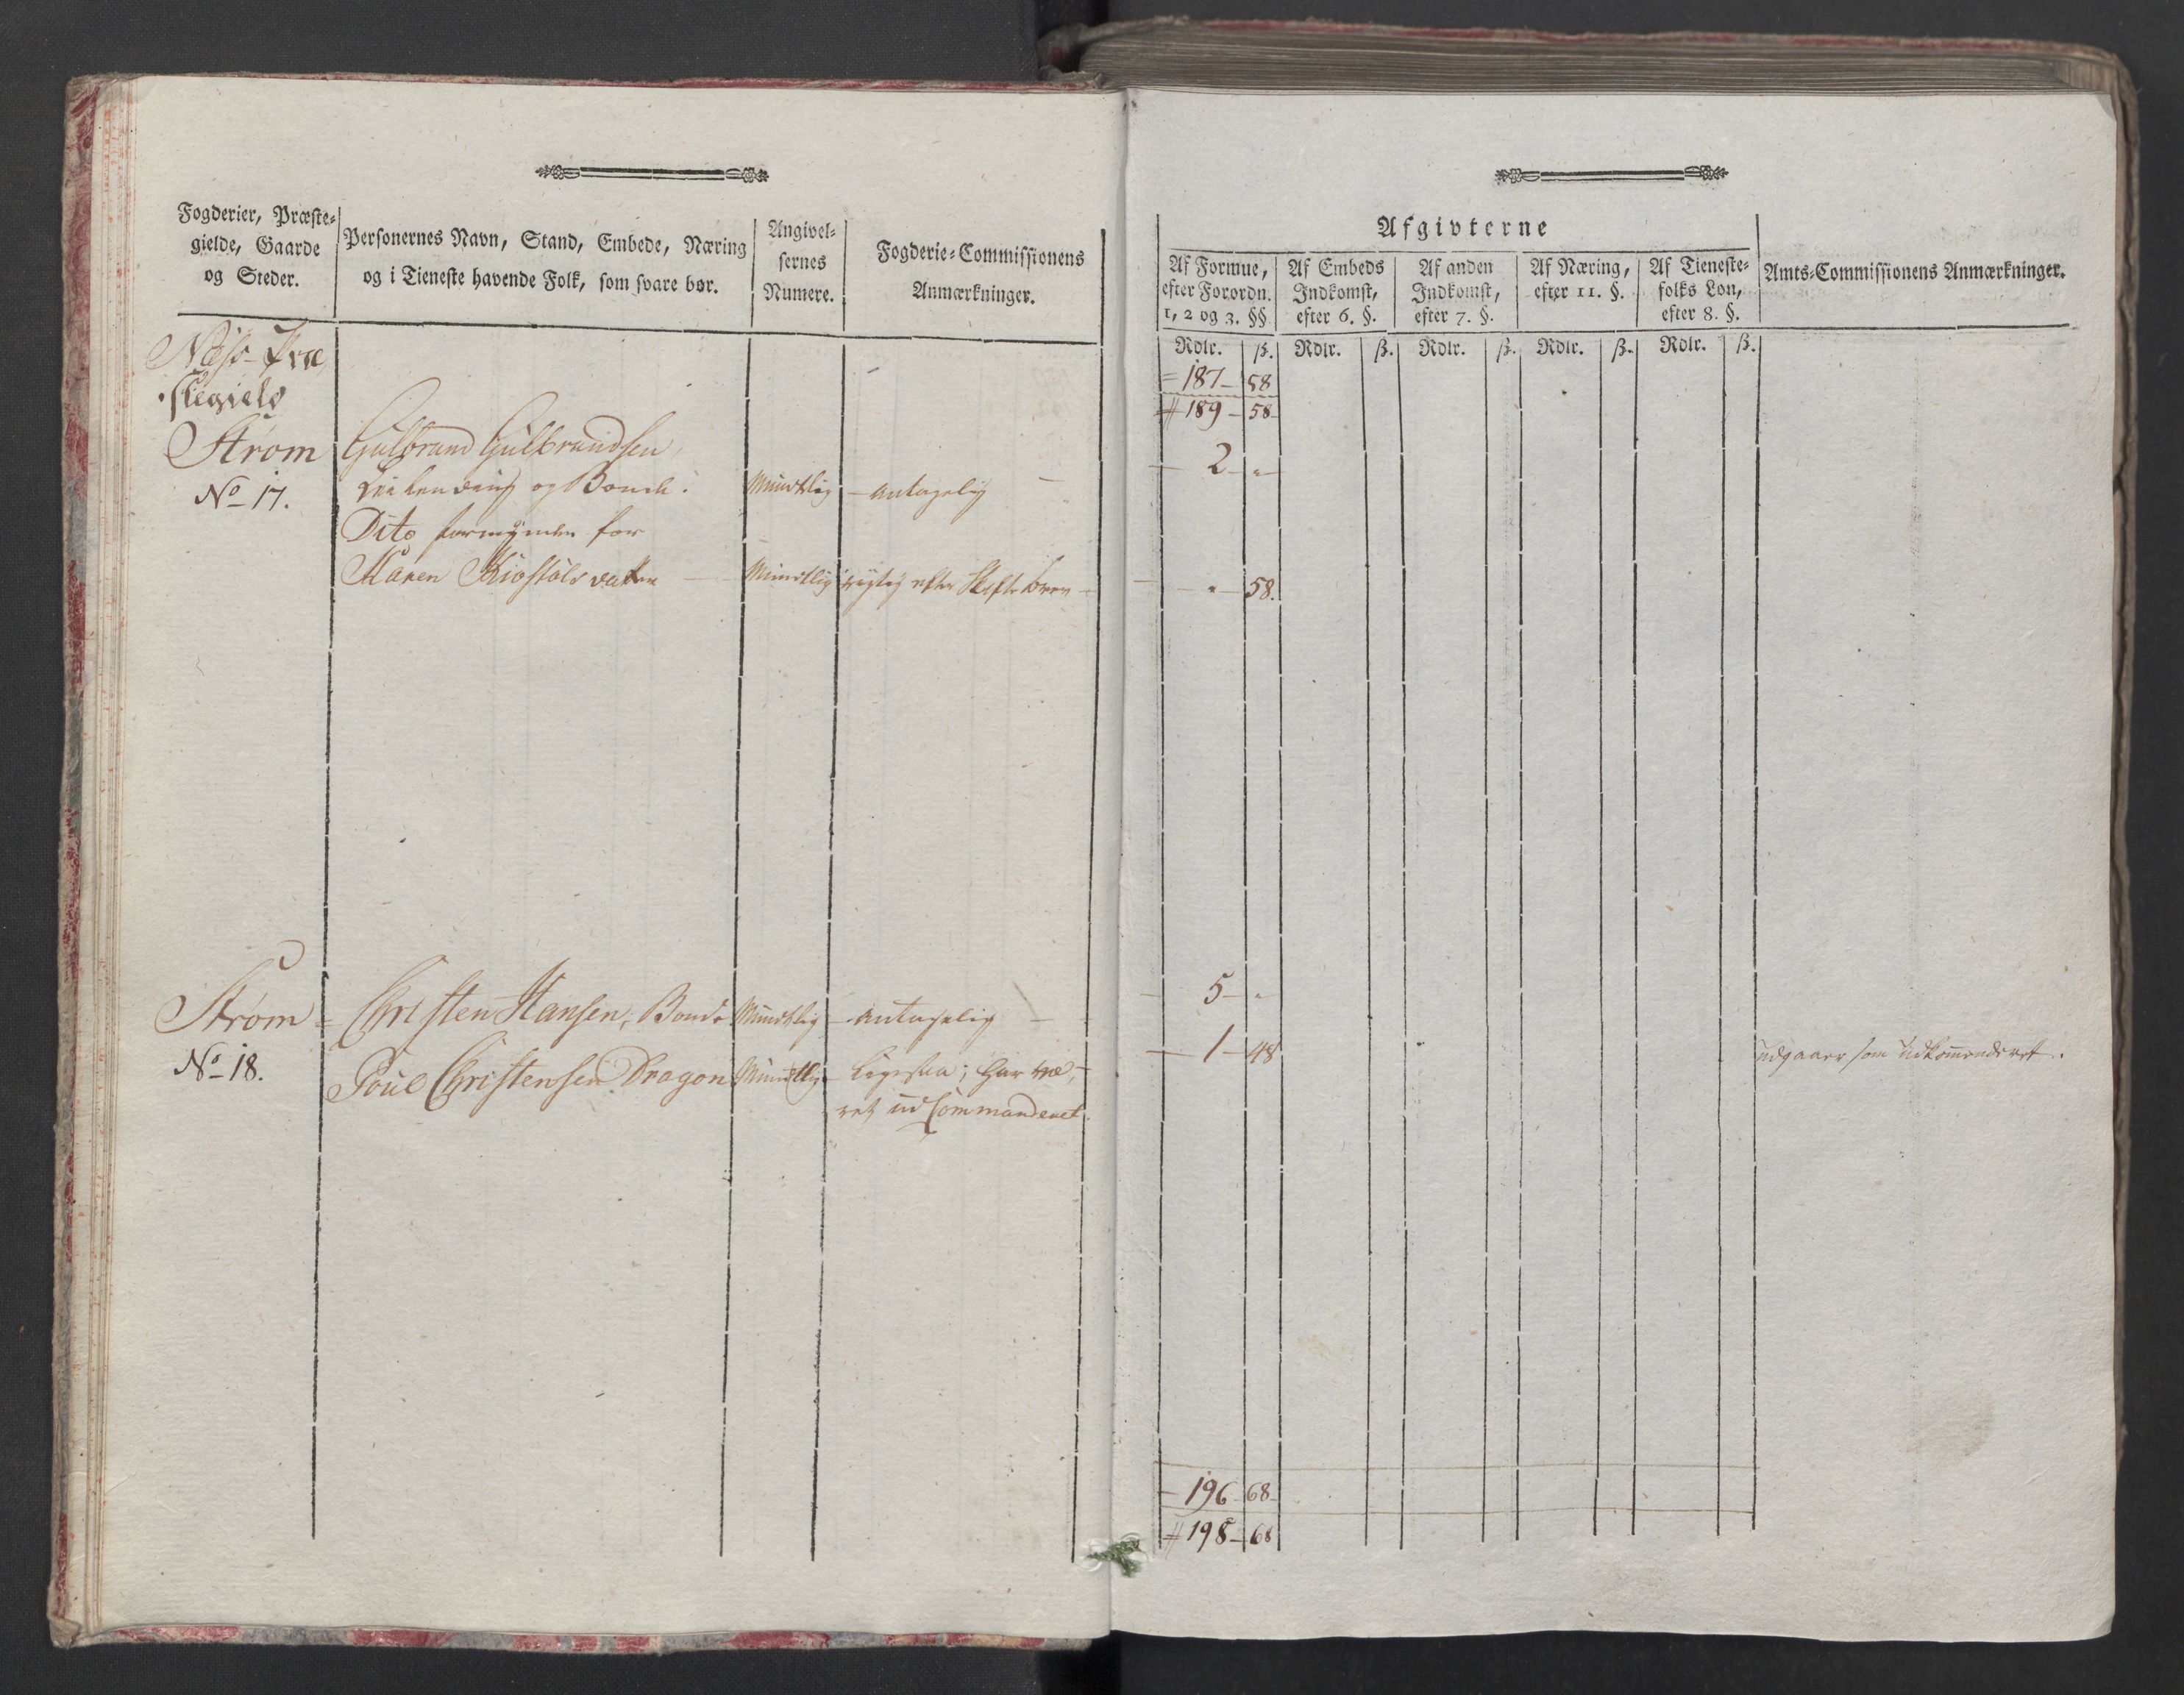 Fogderier, Præste-
gielde, Gaarde
og Steder.
Personernes Navn, Stand, Embede, Næring
og i Tieneste havende Folk, som svare bør.
Angivel-
sernes
Numere.
Fogderie-Commissionens
Anmærkninger.
Næss Præ
stegield
Strøm
No 17.
Gulbrand Gulbrandsen
Leilending og Bonde.
Mundtlig
antagelig
Dito formynder for
Maren Kiostölsdatter
Mundtlig
rigtig efter Skiftebrev
Strøm
No 18.
Christen Hansen, Bonde
Mundtlig
antagelig
Poul Christensen Dragon
Mundtlig
Ligesaa; har væ-
ret ud Commanderet.
Afgivterne
Af Formue,
efter Forordn.
1, 2 og 3. §§
Af Embeds
Indkomst,
efter 6. §.
Af anden
Indkomst,
efter 7. §.
Af Næring,
efter 11. §.
Af Tieneste-
folks Løn,
efter 8. §.
Amts-Commissionens Anmærkninger.
Rdlr. ß. Rdlr. ß. Rdlr. ß. Rdlr. ß. Rdlr. ß.
187 58
189 58
2 "
" 58.
5 "
1 48
udgaaer som udkommenderet.
196 68
198 68